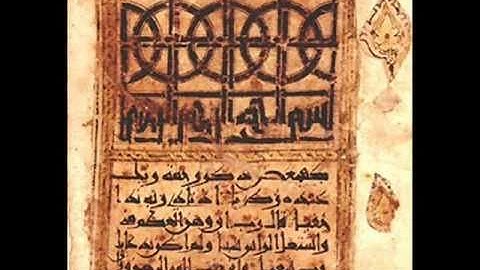 بسم الله الرحمن الرحيم
كهيعص ذكر رحمة ربك
عبده زكريا اذ نادى ربه ندا
خفيا قال رب اني وهن العظم مني
واشتعل الراس شيبا ولم اكن بدعا